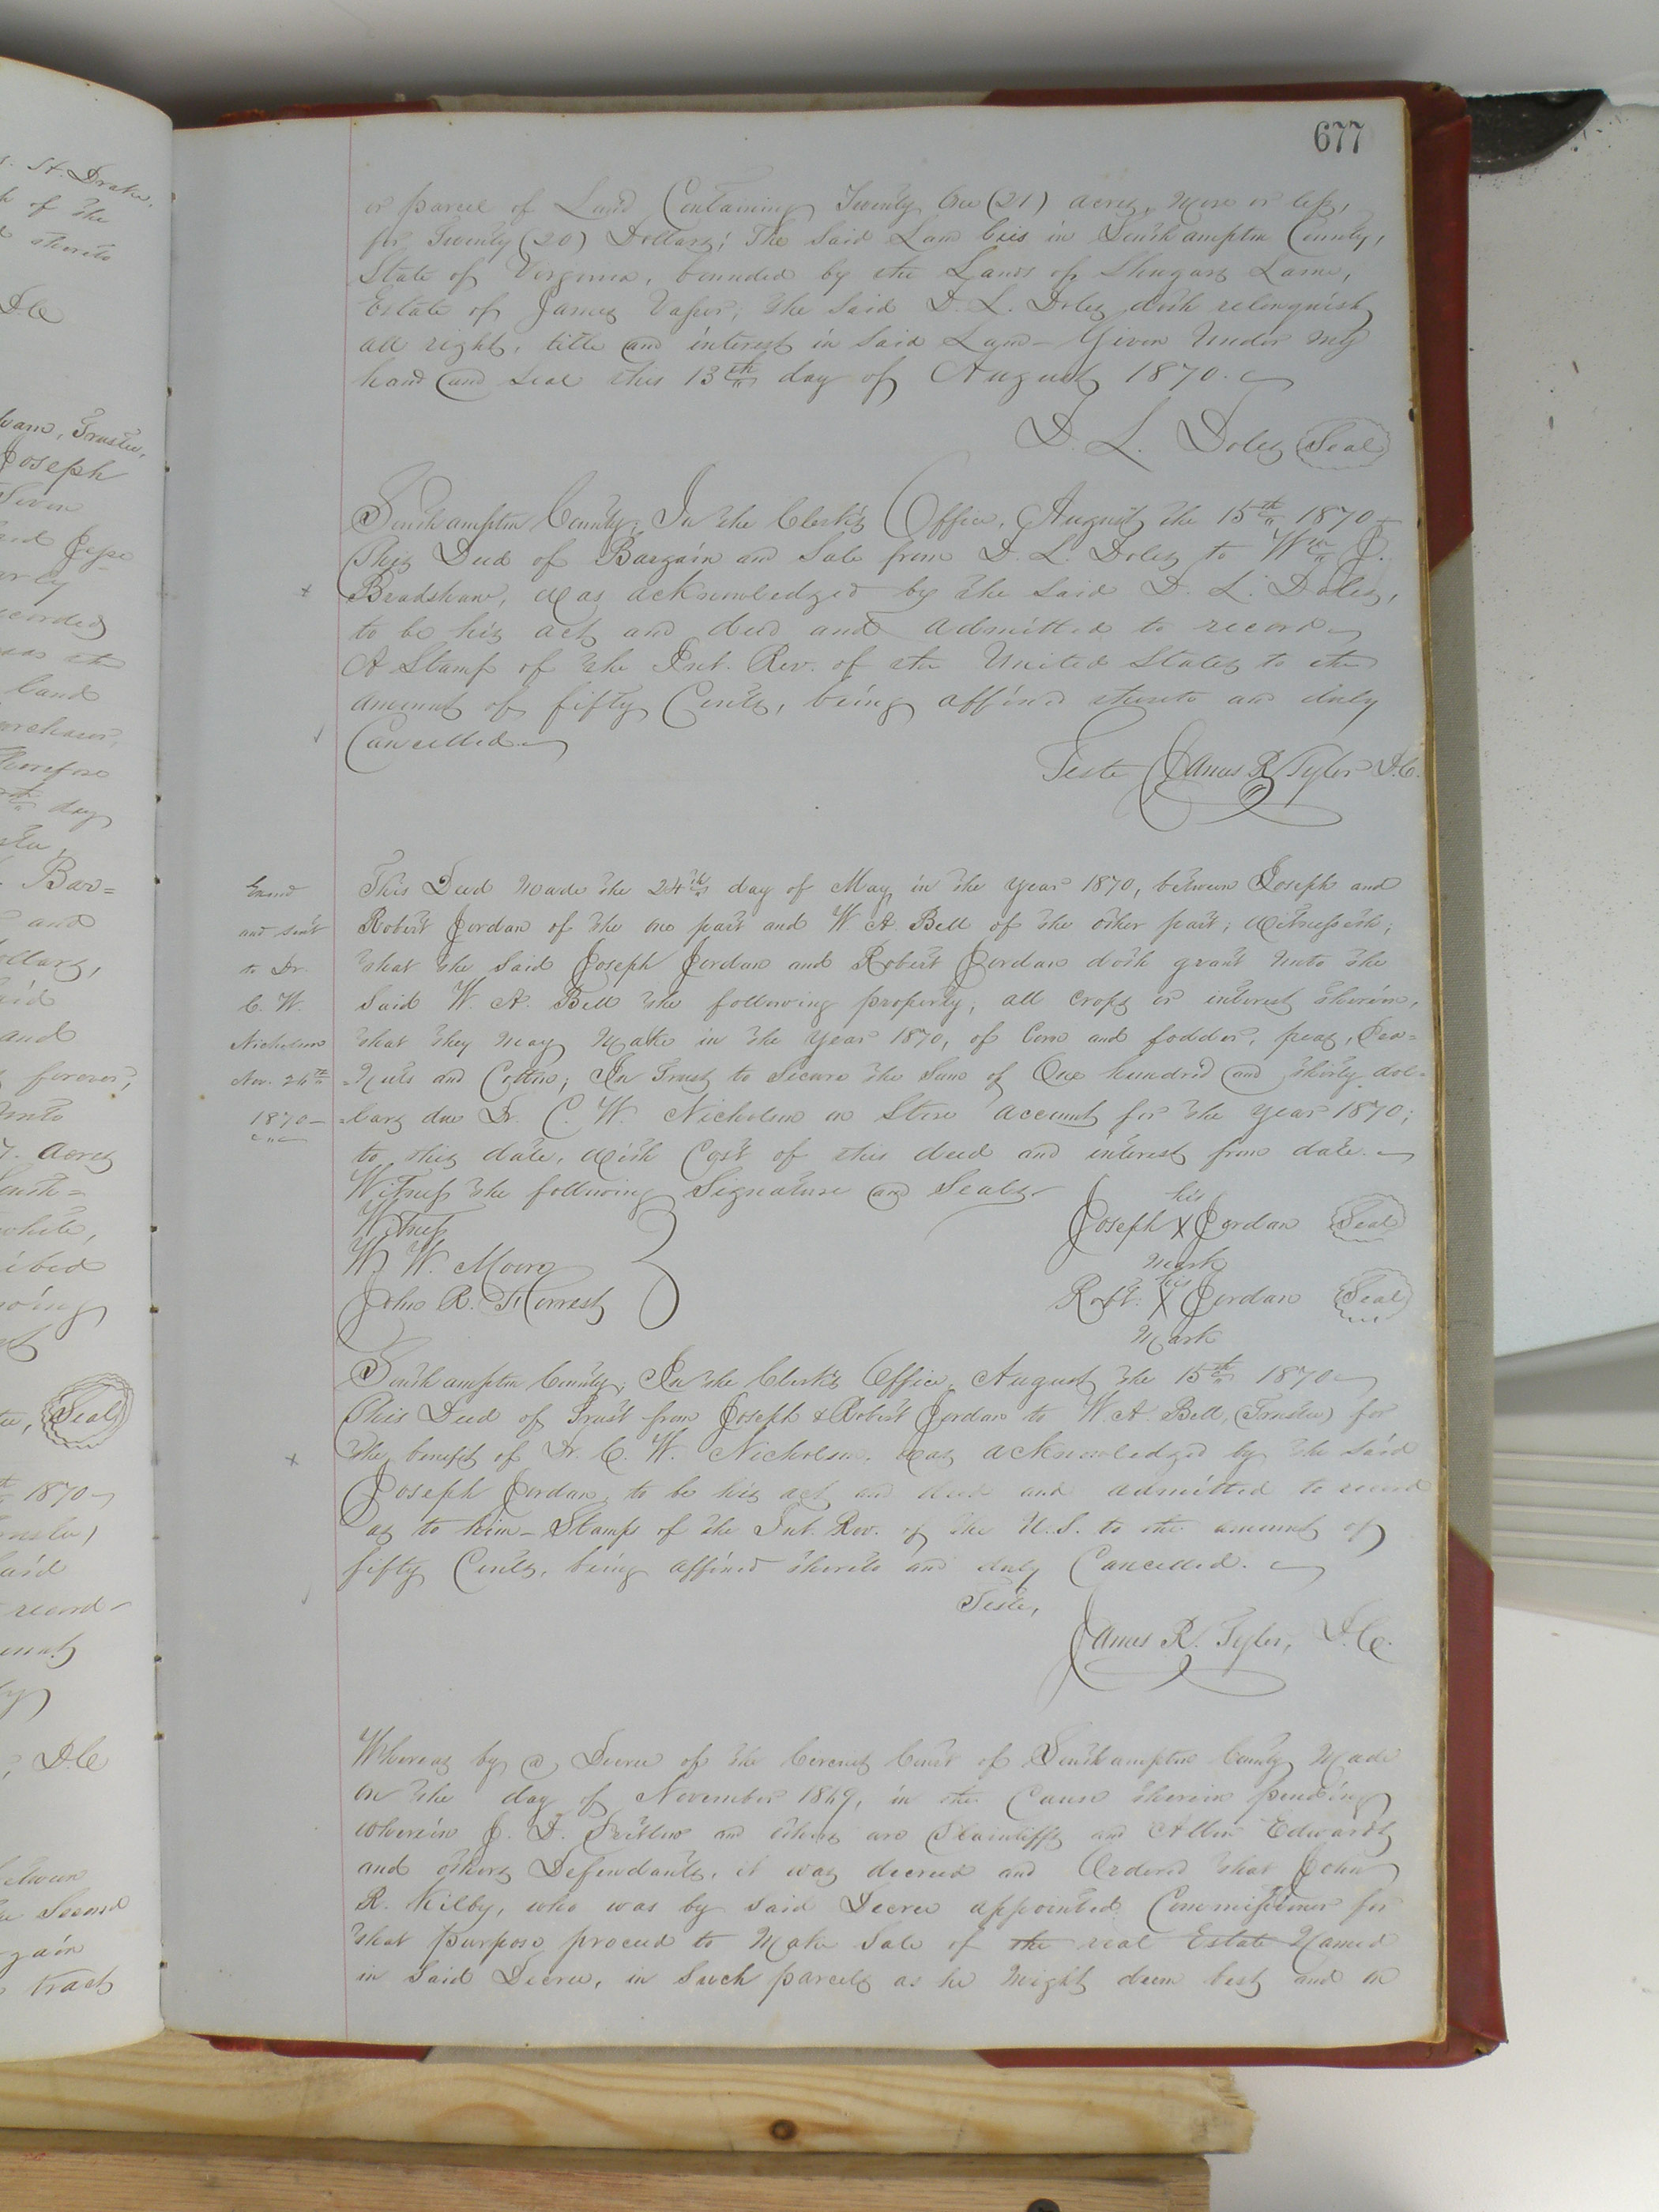 677
or parcel of Land Containing Twenty One (21) acres, More or less,
for Twenty (20) Dollars; The Said Lan lies in Southampton County,
State of Virginia, bounded by the Lands of Shugars Laine,
Estate of James Vaser; the Said D. L. Doles doth relinquish
all right, title and interest in Said Land — Given Under my
hand and Seal this 13th day of August 1870.
D. L. Doles Seal
Southampton County; In the Clerk's Office, August the 15th 1870 —
This Deed of Bargain and Sale from D. L. Doles to Wm J.
Bradshaw, was acknowledged by the Said D. L. Doles,
to be his act and deed and admitted to record
A Stamp of the Int. Rev. of the United States to the
amount of fifty Cents, being affixed thereto and duly
Cancelled.
Teste James R. Tyler D.C.
Exmd
and sent
to Dr.
C. W.
Nicholson
Nov. 26th
1870 —
This Deed Made the 24th day of May in the Year 1870, between Joseph and
Robert Jordan of the one part and W. A. Bell of the other part; Witnesseth;
that the Said Joseph Jordan and Robert Jordan doth grant Unto the
Said W. A. Bell the following property, all crops or interest therein,
that they May Make in the Year 1870, of Corn and fodder, peas, Pea=
=Nuts and Cotton; In Trust to Secure the Sum of One hundred and thirty dol=
=lars due Dr. C. W. Nicholson on Store Account for the Year 1870;
to this date, with Cost of this deed and interest from date.
Witness the following Signature and Seals —
Witness
W. W. Moore
John R. Forrest
his
Joseph X Jordan Seal
Mark
his
Robt. X Jordan Seal
Mark
Southampton County; In the Clerk's Office, August the 15th 1870
This Deed of Trust from Joseph & Robert Jordan to W. A. Bell, (Trustee) for
the benefit of Dr. C. W. Nicholson, was acknowledged by the said
Joseph Jordan, to be his act and deed and admitted to record
as to him — Stamps of the Int. Rev. of the U.S. to the amount of
fifty Cents, being affixed thereto and duly Cancelled.
Teste,
James R. Tyler, D.C.
Whereas by a Decree of the Circuit Court of Southampton County Made
on the day of November 1869, in the Cause therein pending
wherein J. D. and others are Plaintiffs and Allen Edwards
and others Defendants, it was decreed and Ordered that John
R. Kilby, who was by Said Decree appointed Commissioner for
that purpose proceed to Make Sale of the real Estate Named
in Said Decree, in Such parcels as he Might deem best and on